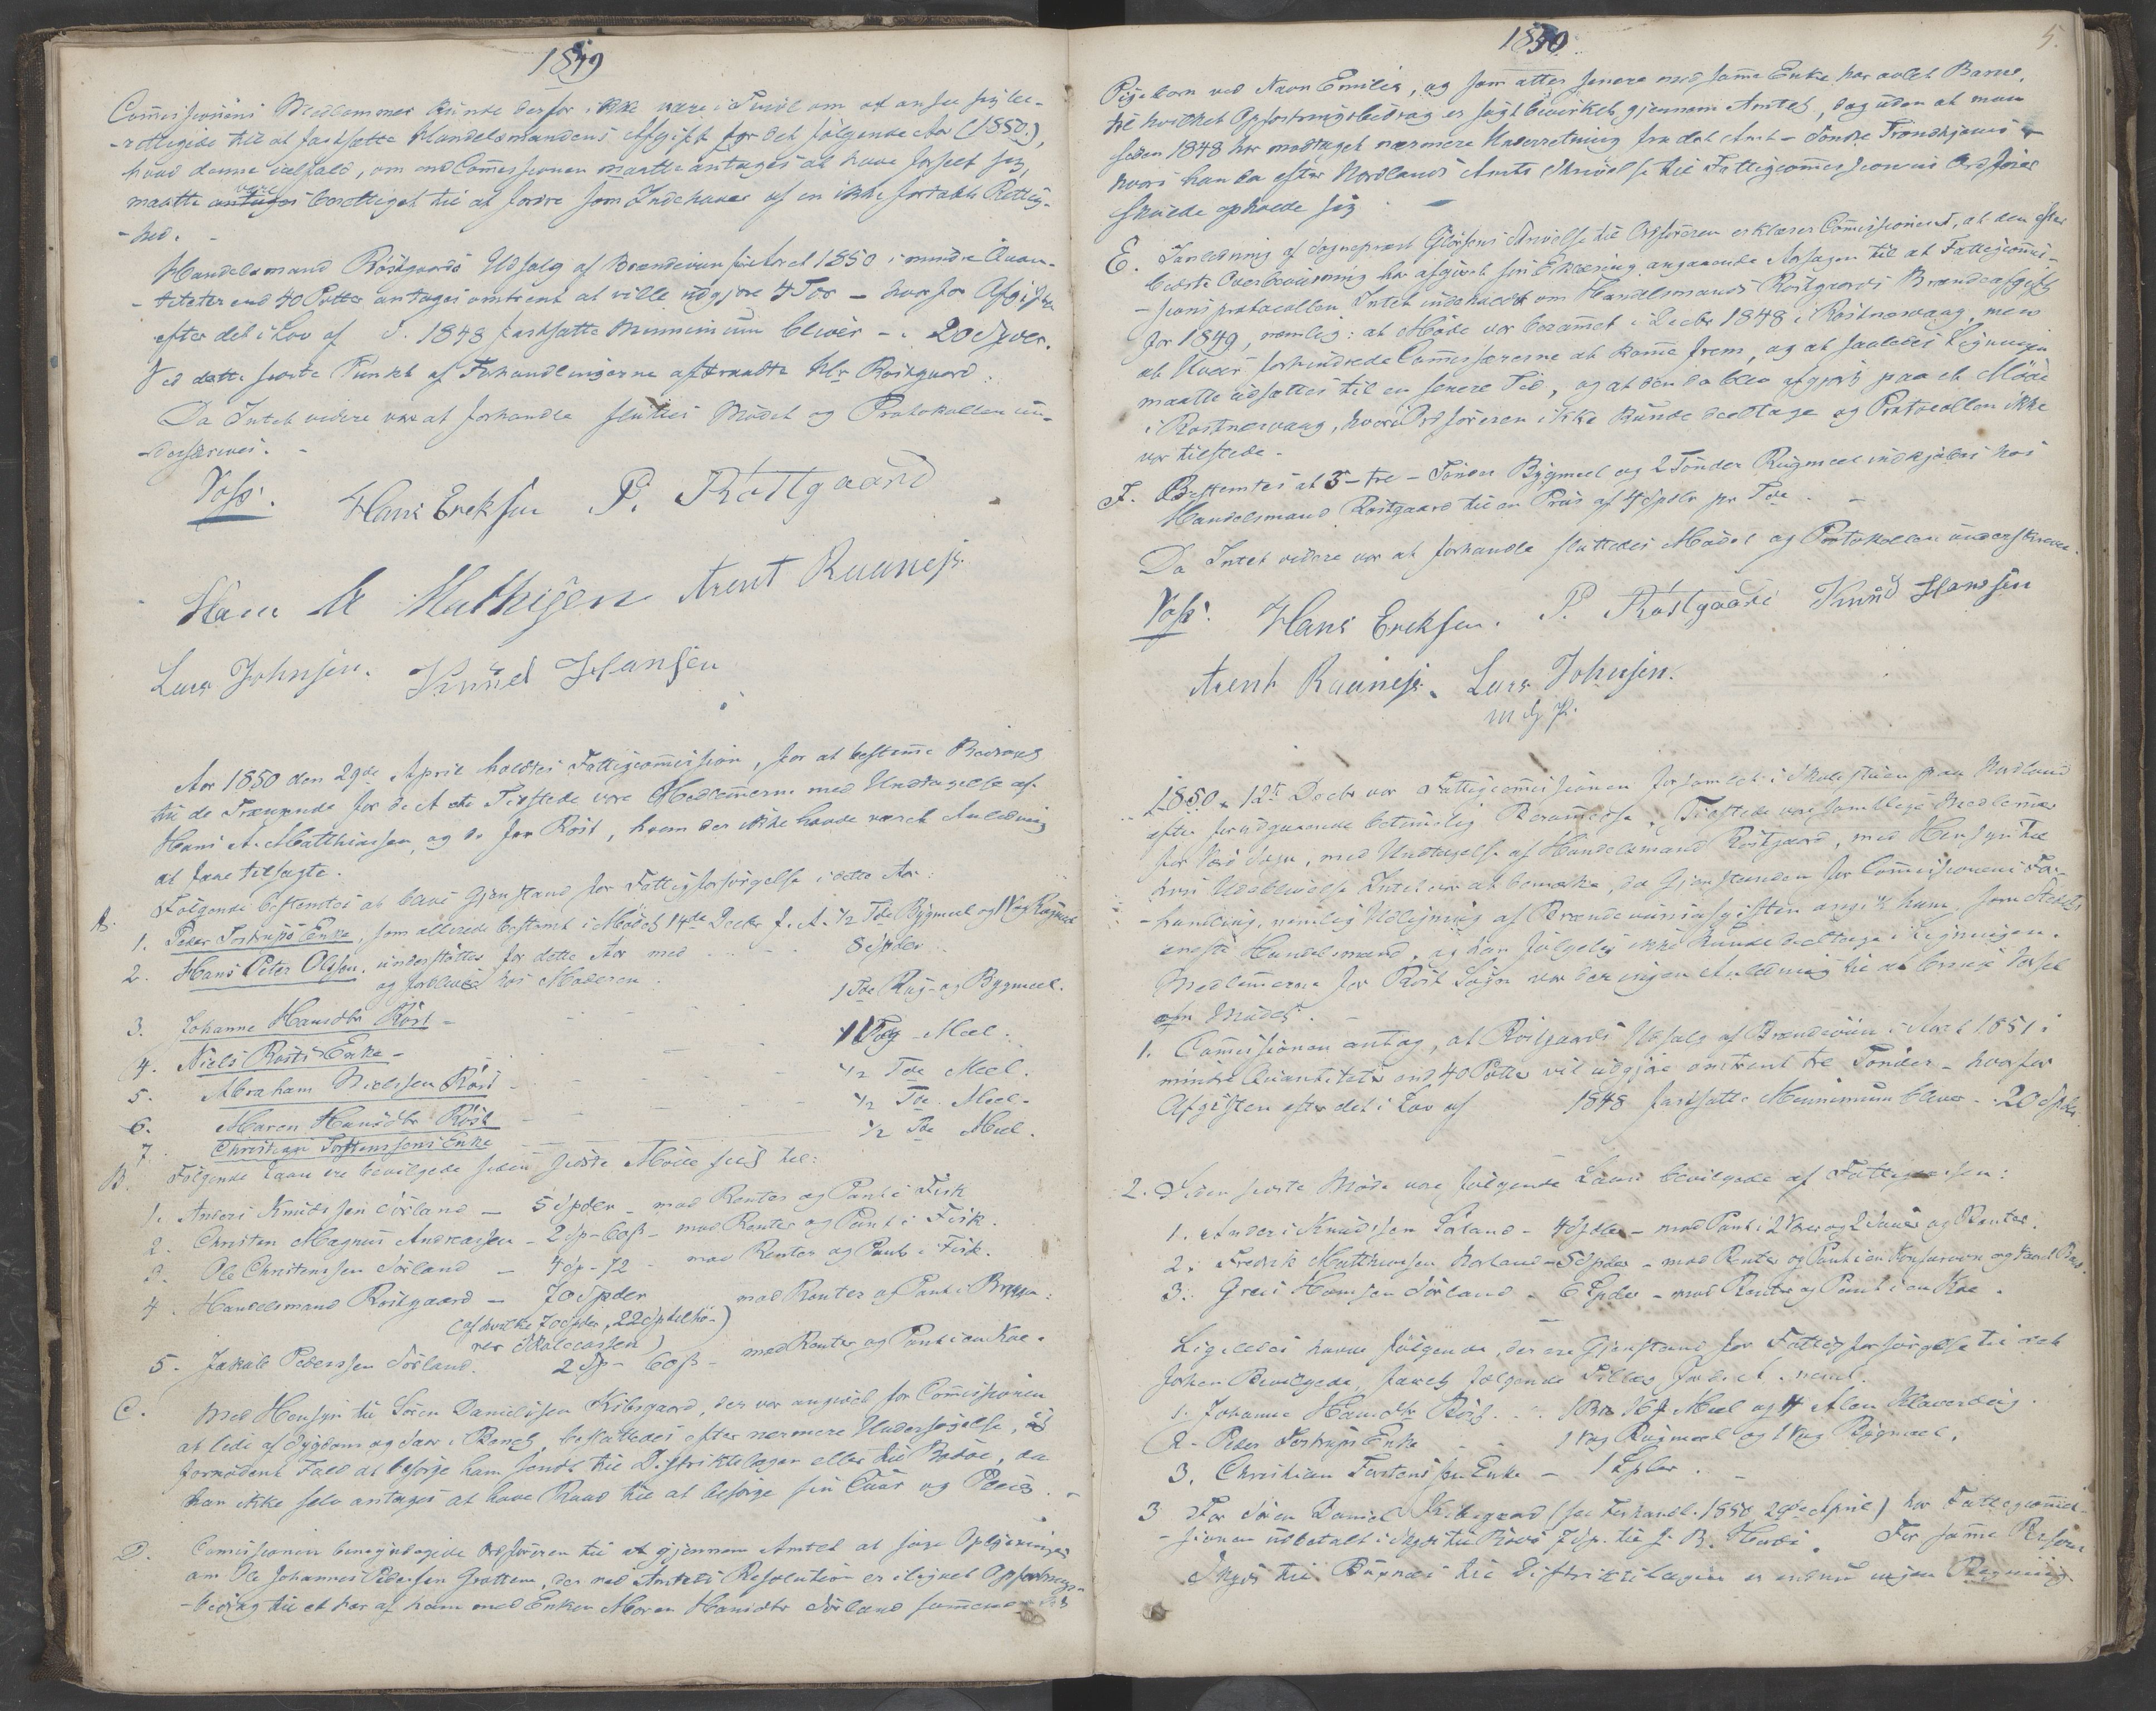 1849
Commissionens Medlemmer kunde derfor ikke være i Tvivl om at ansee sig be-
-rettigede til at fastsætte Handelsmandens Afgift for det følgende Aar (1850.),
hvad denne ialfald, om end Commissionen maatte antages at have forseet sig,
maatte antages være berettiget til at fordre som Indehaver af en ikke fortabt Rettig-
-hed.
Handelsmand Röstgaards Udsalg af Brændeviin for Aaret 1850 i mindre Quan-
-titeter end 40 Potter antages omtrent at ville udgjøre 4 Tdr - hvorfor Afgiften
efter det i Lov af 1848 fastsatte Minimum bliver - 20 Spdlr.
Ved dette første Punkt af Forhandlingerne aftraadte Hr Röstgaard.
Da Intet videre var at forhandle sluttes Mødet og Protokollen un-
-derskrives.
Voss. Hans Ereksen P. Röstgaard
Hans A Mathisen Arent Raanes
Lars Johnsen. Knud Hansen
Aar 1850 den 29de April holdtes Fattigcommission, for at bestemme Bidrag
til de Trængende for d. A. Tilstede vare Medlemmerne med Undtagelse af
Hans A. Matthiassen, og de for Röst, hvem der ikke havde været Anledning
at faae tilsagte.
A. Følgende bestemtes at blive Gjenstand for Fattigforsørgelse i dette Aar:
1. Peder Torstrups Enke, som allerede bestemt i Mødet 14de Decbr f. A. 1/2 Tde Bygmeel og 1 Vog Rugmeel
2. Hans Peter Olsen, understøttes for dette Aar med 8 Spdlr
og forbliver hos Moderen.
3. Johanne Hansdtr Röst - 1 Tde Rug- og Bygmeel.
4. Niels Rösts Enke - 1 Vog Meel.
5. Abraham Nielssen Röst - 1/2 Tde Meel.
6. Maren Hansdtr Röst 1/2 Tde. Meel.
7. Christiane Torstenssens Enke 1/2 Tde Meel.
B. Følgende Laan ere bevilgede siden sidste Møde fast til:
1. Anders Knudssen Sörland - 5 Spdlr - mod Renter og Pant i Fisk
2. Christen Magnus Andreassen - 2 Sp - 60 ß - mod Renter og Pant i Fisk.
3. Ole Christenssen Sörland - 4 Sp - 72 - mod Renter og Pant i Fisk.
4. Handelsmand Röstgaard - 70 Spdlr mod Renter og Pant i Brygge.
(af hvilke 70 Spdlr, 22 Sp tilhø-
rer Skolecassen)
5. Jakob Pederssen Sörland. 2 Sp - 60 ß - mod Renter og Pant i en Koe.
C. Med Hensyn til Sören Danielssen Kibsgaard, der var angivet for Commissionen
at lide af Sygdom og Saar i Benet, besluttedes efter nærmere Undersøgelse, i
fornødent Fald at besørge ham sendt til Distriktslægen eller til Bodøe, da
han ikke selv antages at have Raad til at besørge sin Cuur og Pleie.
D. Commissionen bemyndigede Ordføreren til at gjennem Amtet at søge Oplysninger
om Ole Johannes Pedersen Grøttem, der ved Amtets Resolution er ilignet Opfostrings-
-bidrag til et har af ham med Enken Maren Hansdtr Sörland
1850
5.
Pigebarn ved Navn Emilie, og som atter senere med samme Enke har avlet Barn,
til hvilket Opfostringsbidrag er søgt bevirket gjennem Amtet, dog uden at man
siden 1848 har modtaget nærmere Underretning fra det Amt - Söndre Trondhjems -
hvori han da efter Nordlands Amts Skrivelse til Fattigcommissionens Ordfører
skulde opholde sig.
E. I Anledning af Sognepræst Skrivelse til Ordføreren erklærer Commissionen, at den efter
bedste Overbeviisning har afgivet sin Erklæring angaaende Aarsagen til at Fattigcommis-
-sionsprotocollen Intet indeholdt om Handelsmand Röstgaards Brændeafgift
for 1849, nemlig: at Møde var berammet i Decbr 1848 i Röstnesvaag, men
at Uveir forhindrede Commissærerne at komme frem, og at saaledes Ligningen
maatte udsættes til en senere Tid, og at den da blev afgjort paa et Møde
i Röstnesvaag, hvori Ordføreren ikke kunde deeltage og Protocollen ikke
var tilstede.
F. Bestemtes at 3 - tre - Tönder Bygmeel og 2 Tönder Rugmeel indkjøbes hos
Handelsmand Röstgaard til en Priis af 4 Spdlr pr Tde.
Da Intet videre var at forhandle sluttedes Mødet og Protokollen underskreven.
Voss. Hans Ereksen. P. Röstgaard Knud Hanssen
Arent Raanes. Lars Johnsen.
m. p. P.
1850. 12te Decbr var Fattigcommissionen forsamlet i Skolestuen paa Nordland
efter forudgaaende betimelig Berammelse. Tilstede vare samtlige Medlemmer
for Værö Sogn, med Undtagelse af Handelsmand Röstgaard, med Hensyn til
hvis Udeblivelse Intet var at bemærke, da Gjenstanden for Commissionens For-
-handling, nemlig Udligning af Brændeviinsafgiften angik ham, som Stedets
eneste Handelsmand, og han følgelig ikke kunde deeltage i Ligningen.
Medlemmerne for Röst Sogn var der ingen Anledning til at bringe Varsel
om Mødet.
1. Commissionen antog, at Röstgaards Udsalg af Brændeviin i Aaret 1851 i
mindre Quantiteter end 40 Potter vil udgjøre omtrent tre Tönder - hvorfor
Afgiften efter det i Lov af 1848 fastsatte Minimum bliver - 20 Spdlr.
2. Siden sidste Møde vare følgende Laan bevilgede af Fattigcassen:
1. Anders Knudssen Sörland - 4 Spdlr - mod Pant i 2 Kiør og 2 Sauer og Renter.
2. Fredrik Matthiassen Norland - 5 Spdlr - mod Renter og Pant i en
3. Greis Hanssen Sörland - 6 Spdlr - mod Renter og Pant i en Koe.
Ligeledes havde følgende, der ere Gjenstand for Fattigforsørgelse til det
forhen Bevilgede, faaet følgende Tillæg for d. A. neml.
1. Johanne Hansdtr Röst. 1 Bz 16 # Meel og 4 Alen Klaverdug.
2. Peder Torstrups Enke 1 Vog Rugmeel og 1 Vog Bygmeel.
3. Christian Torstenssens Enke - 1 Spdlr.
3 For Sören Daniel Kibsgaard (see Forhandl. 1850, 29de April) har Fattigcommis-
-sionen udbetalt i Skyds til Bodø 7 Sp. til J. B. For samme Persons
Skyds til Bupnæs til Distriktslægen er endnu ingen Regning